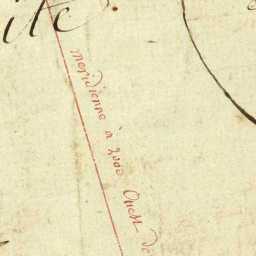 ité
meridienne à 2000 Ouest de